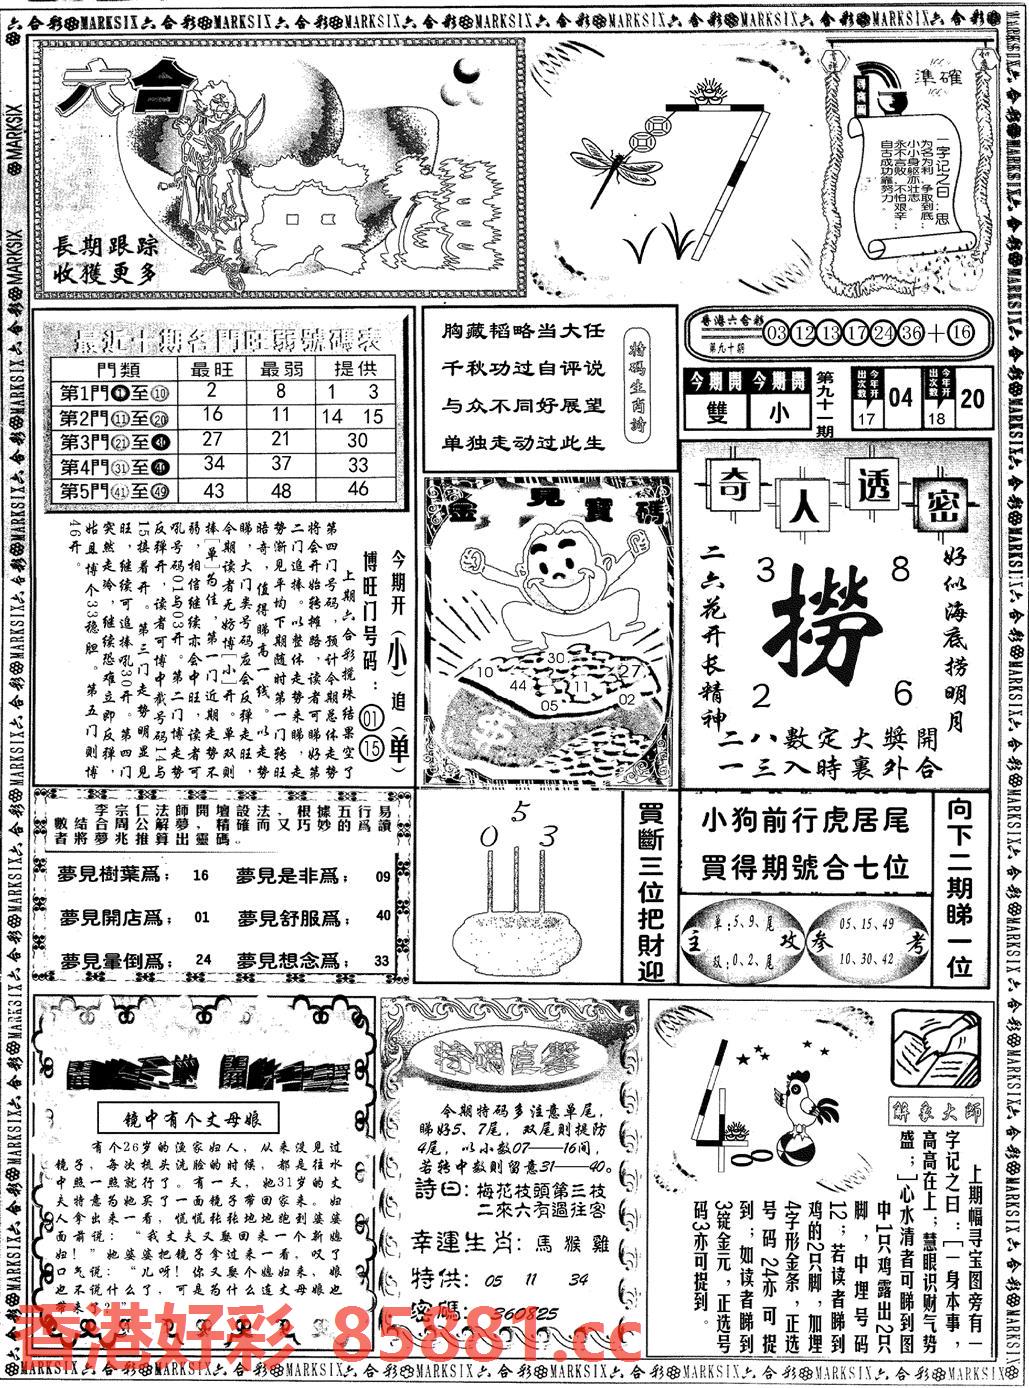 六合
長期跟踪
收獲更多
準確
一字记之曰：思
为名为利 争取到底…
小小身躯亦壮志。
永不言败 不怕艰辛…
自古成功靠努力。
最近十期各門旺弱號碼表
門類 最旺 最弱 提供
第1門①至⑩ 2 8 1 3
第2門⑪至⑳ 16 11 14 15
第3門㉑至㉚ 27 21 30
第4門㉛至㊵ 34 37 33
第5門㊶至㊾ 43 48 46
胸藏韬略当大任
千秋功过自评说
与众不同好展望
单独走动过此生
特码生肖詩
香港六合彩
第九十期
03 12 13 17 24 36 + 16
今期開 雙
今期開 小
第九十一期
今年开出次数 17 04
今年开出次数 18 20
今期开（小）追（单）
博旺门号码：01 15
上期六合彩搅珠结果空了
第四门号码，预计今期总体走势
将会开始转摊路，读者可睇好第
二门追捧。以整体走势来睇，走
势渐见平均下期随时第一门转旺
暗奇，值得睇高一线。以走势
睇，大门类号码应会反弹走旺，
今期读者无妨博[小]开。单双则
捧[单]为佳，第一门近期走势不
弱，相信继续亦会中旺，读者可
吼号码01与03开。第二门博走势
反弹开，读者可博截号码14与
15接着开。第三门走势明显见
旺，继续可追捧吼30开。第四门
突然走冷，继续恐难立即反弹，
姑且博个33稳胆。第五门则博
46开。
金見寶碼
10 30 27 44 11 02 05
奇人透密
二六花开长精神
好似海底捞明月
3 8
撈
2 6
二八數定大獎開
一三入時裏外合
李宗仁法師開壇設法，根據五行易
數結合周公解夢，精確而又巧妙的爲讀
者將夢兆推算出靈碼。
夢見樹葉爲； 16 夢見是非爲； 09
夢見開店爲； 01 夢見舒服爲； 40
夢見暈倒爲； 24 夢見想念爲； 33
0 5 3
買斷三位把財迎
小狗前行虎居尾
買得期號合七位
主攻
单:5、9、尾
双:0、2、尾
参考
05、15、49
10、30、42
向下二期睇一位
镜中有个丈母娘
有个26岁的渔家妇人，从来没见过
镜子，每次梳头洗脸的时候，都是往水
中照一照就行了。有一天，她31岁的丈
夫特意为她买了一面镜子带回家来。妇
人拿出来一看，慌慌张张地地跑到婆婆
面前说：“我丈夫又娶回来一个新媳
妇！”她婆婆把镜子拿过来一看，叹了
口气说：“儿呀！你又娶个媳妇来，娘
也不说什么了，可是为什么连丈母娘也
带来了？”
特碼直擊
今期特码多注意单尾，
睇好5、7尾，双尾则提防
4尾，以小数07——16间，
若转中数则留意31——40。
詩曰：梅花枝頭第三枝
二來六有過往客
幸運生肖：馬 猴 雞
特供：05 11 34
密碼：360825
解象大師
上期幅寻宝图旁有一
字记之曰：[一身本事，
高高在上；慧眼识财气势
盛；]心水清者可睇到图
中1只鸡露出2只
脚，中埋号码
12；若读者睇到
鸡的2只脚，加埋
4字形金条，正选
号码24亦可捉
到；如读者睇到
3锭金元，正选号
码3亦可捉到。
香港好彩 85881.cc